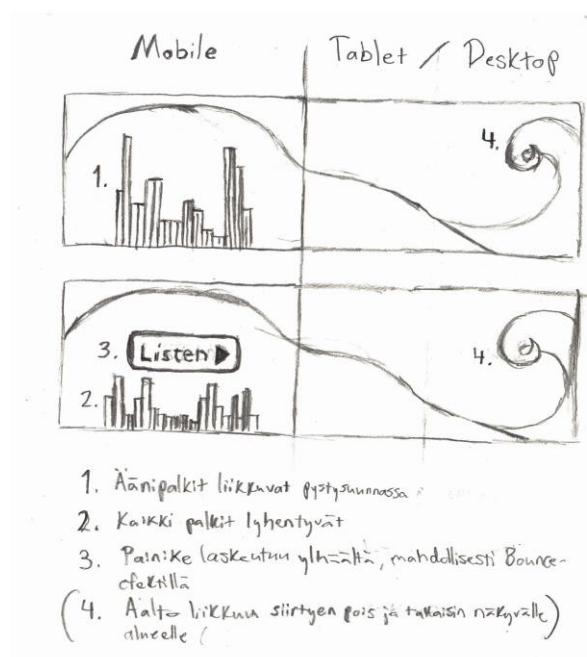 Mobile
Tablet / Desktop
4.
1.
3. Listen
4.
2.
1. Äänipalkit liikkuvat pystysuunnassa
2. Kaikki palkit lyhentyvät
3. Painike laskeutuu ylhäältä, mahdollisesti Bounce-
efektillä
(4. Aalto liikkuu siirtyen pois ja takaisin näkyvälle)
alueelle (